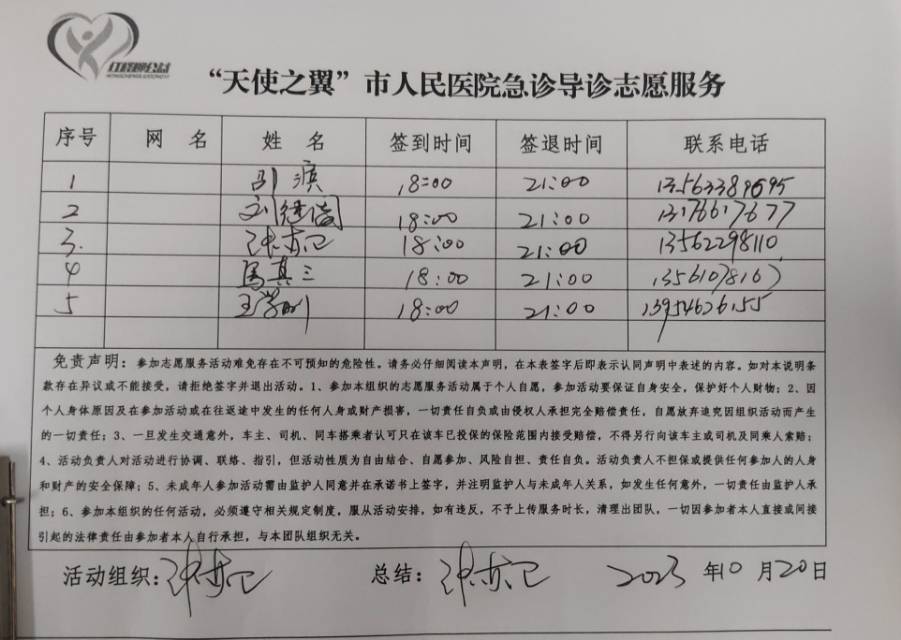 红橙映公益
“天使之翼”市人民医院急诊导诊志愿服务
序号 网 名 姓 名 签到时间 签退时间 联系电话
1 18:00 21:00
2 刘 18:00 21:00 13176617677
3. 张亦卫 18:00 21:00 13562298110
4 马真三 18:00 21:00
5 王学刚 18:00 21:00 13954626155
免责声明：参加志愿服务活动难免存在不可预知的危险性。请务必仔细阅读本声明，在本表签字后即表示认同声明中表述的内容。如对本说明条
款存在异议或不能接受，请拒绝签字并退出活动。1、参加本组织的志愿服务活动属于个人自愿，参加活动要保证自身安全，保护好个人财物；2、因
个人身体原因及在参加活动或在往返途中发生的任何人身或财产损害，一切责任自负或由侵权人承担完全赔偿责任，自愿放弃追究因组织活动而产生
的一切责任；3、一旦发生交通意外，车主、司机、同车搭乘者认可只在该车已投保的保险范围内接受赔偿，不得另行向该车主或司机及同乘人索赔；
4、活动负责人对活动进行协调、联络、指引，但活动性质为自由结合、自愿参加、风险自担、责任自负。活动负责人不担保或提供任何参加人的人身
和财产的安全保障；5、未成年人参加活动需由监护人同意并在承诺书上签字，并注明监护人与未成年人关系，如发生任何意外，一切责任由监护人承
担；6、参加本组织的任何活动，必须遵守相关规定制度，服从活动安排，如有违反，不予上传服务时长，清理出团队，一切因参加者本人直接或间接
引起的法律责任由参加者本人自行承担，与本团队组织无关。
活动组织：张亦卫 总结：张亦卫 2023 年10 月20日